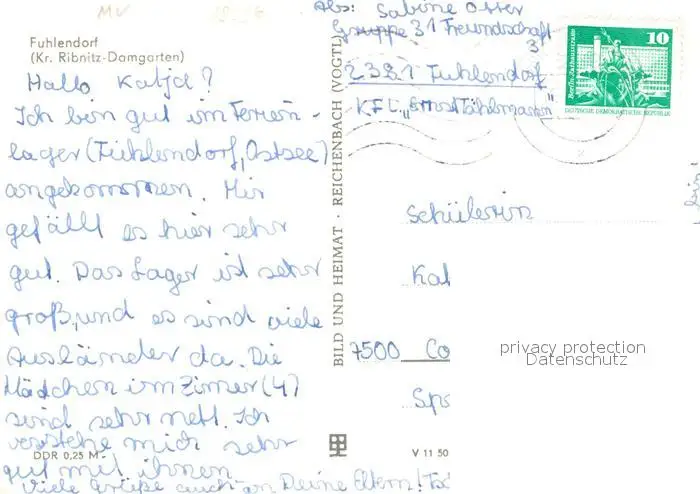 MV
Abs: Sabine Otter
Gruppe 31 Freundschaft
3
2381 Fuhlendorf
KFL "Ernst Thählmann"
10
Berlin, Rathausstraße
DEUTSCHE DEMOKRATISCHE REPUBLIK
Fuhlendorf
(Kr. Ribnitz-Damgarten)
Hallo Katja?
Ich bin gut im Ferien-
lager (Fuhlendorf, Ostsee)
angekommen. Mir
gefällt es hier sehr
gut. Das Lager ist sehr
groß, und es sind viele
Ausländer da. Die
Mädchen im Zimer (4)
sind sehr nett. Ich
verstehe mich sehr
gut mit ihnen
Viele Grüße auch an Deine Eltern!
DDR 0,25 M
BILD UND HEIMAT · REICHENBACH (VOGTL)
V 11 50
Schülerin
Kat
7500 Co
Spr
privacy protection
Datenschutz